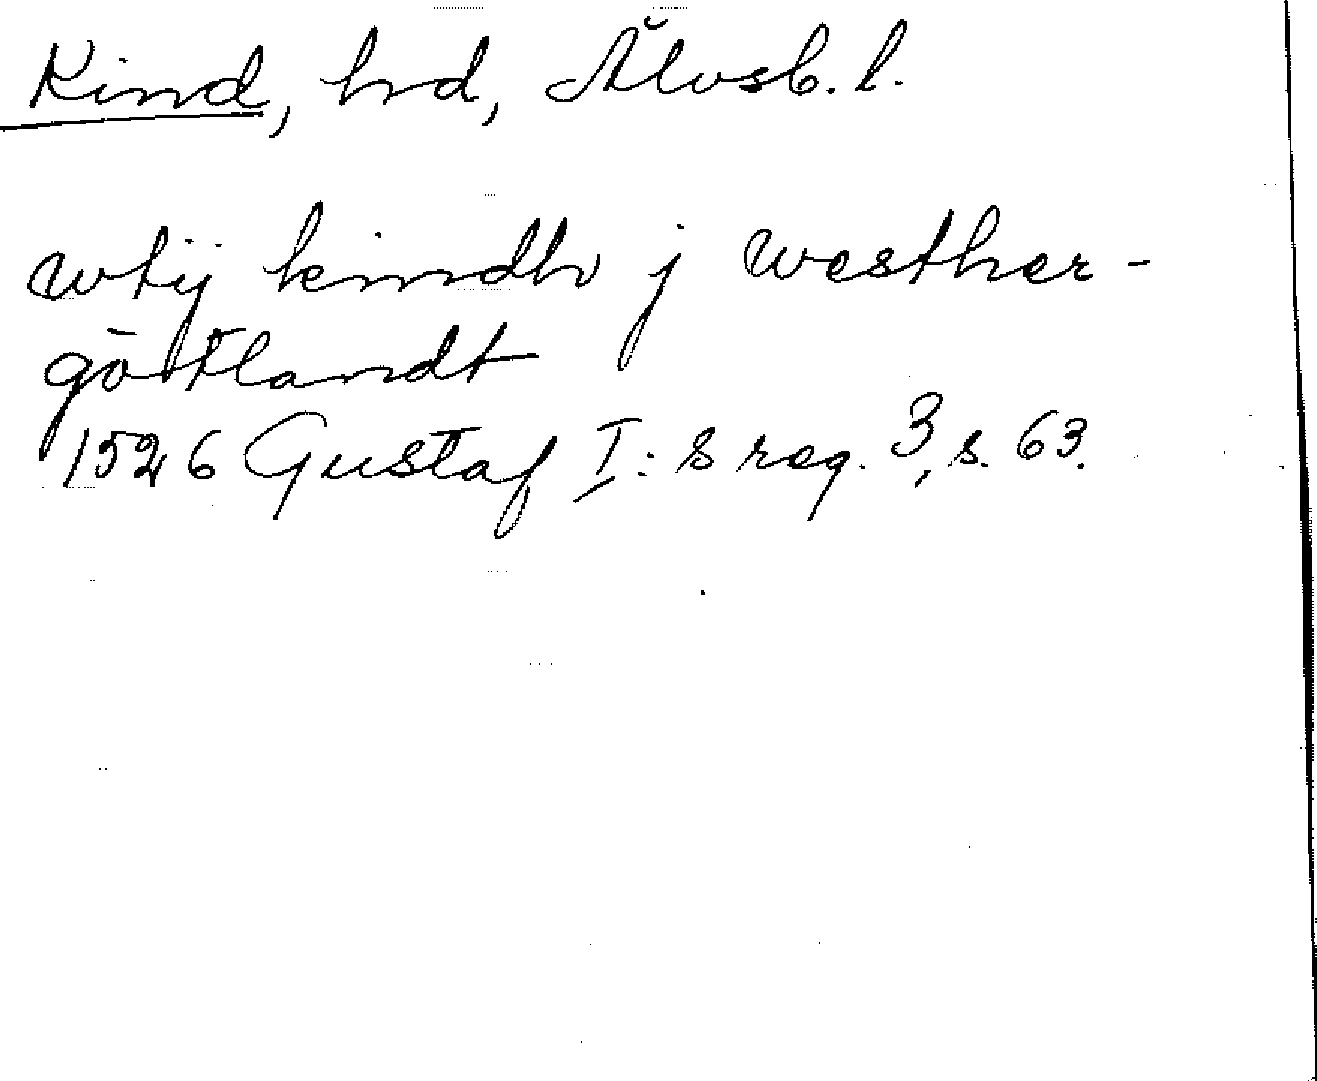 Kind, hd, Älvsb. l.
wtij kindh j westher-
götlandt
1526 Gustaf I:s reg. 3, s. 63.